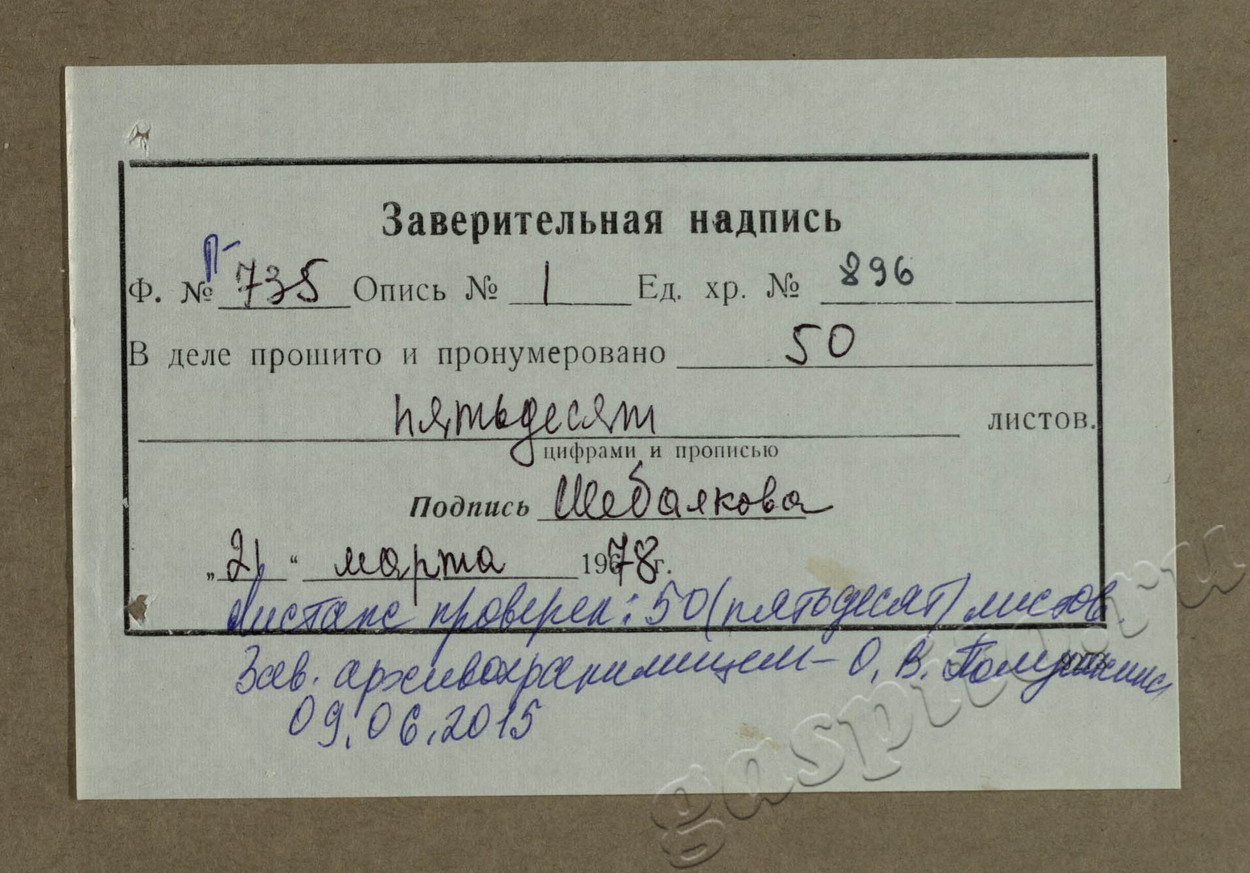 Заверительная надпись
Ф. № П-735 Опись № 1 Ед. хр. № 896
В деле прошито и пронумеровано 50
пятьдесят листов.
цифрами и прописью
Подпись Шебалкова
„21“ марта 1978 г.
проверен: 50 (пятьдесят) листов
Зав. архивохранилищем – О. В.
09.06.2015
gaspito.ru